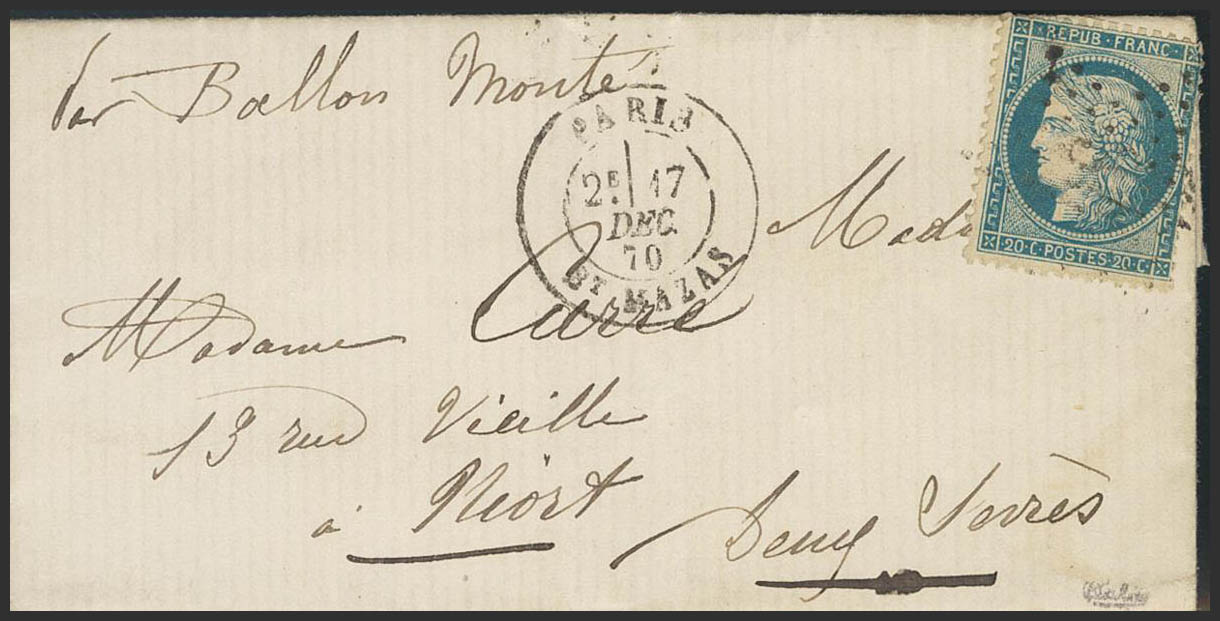 Par Ballon Monté
REPUB · FRANC ·
20 · C · POSTES · 20 · C ·
PARIS
2E 17
DEC.
70
BT MAZAS
Mada
Madame Carré
13 rue Vieille
à Niort
Deux Sevrès